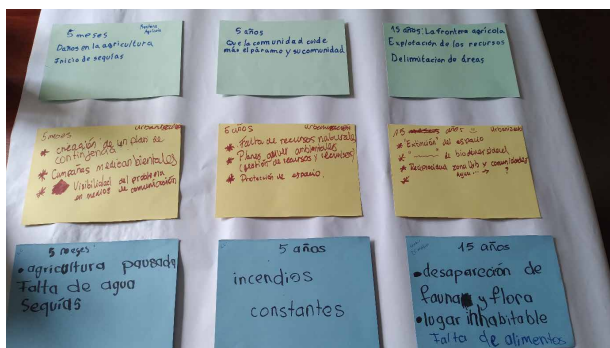 5 meses
Frontera
Agrícola
Daños en la agricultura
Inicio de sequías
5 años
Que la comunidad cuide
más el páramo y su comunidad
15 años: La frontera agrícola
Explotación de los recursos
Delimitación de áreas
5 meses
* creación de un plan de
contingencia
* Campañas medioambientales
* Visibilidad del problema
en medios de comunicación
5 años
* Falta de recursos naturales
* Planes
(gestión de recursos y
* Protección de espacio.
15 años
* "Extinción" del espacio
* de biodiversidad
* zona Urb y comunidades
agua
*
5 meses:
• agricultura pausada
Falta de agua
Sequías
5 años
incendios
constantes
15 años
• desaparición de
fauna y flora
• lugar inhabitable
Falta de alimentos